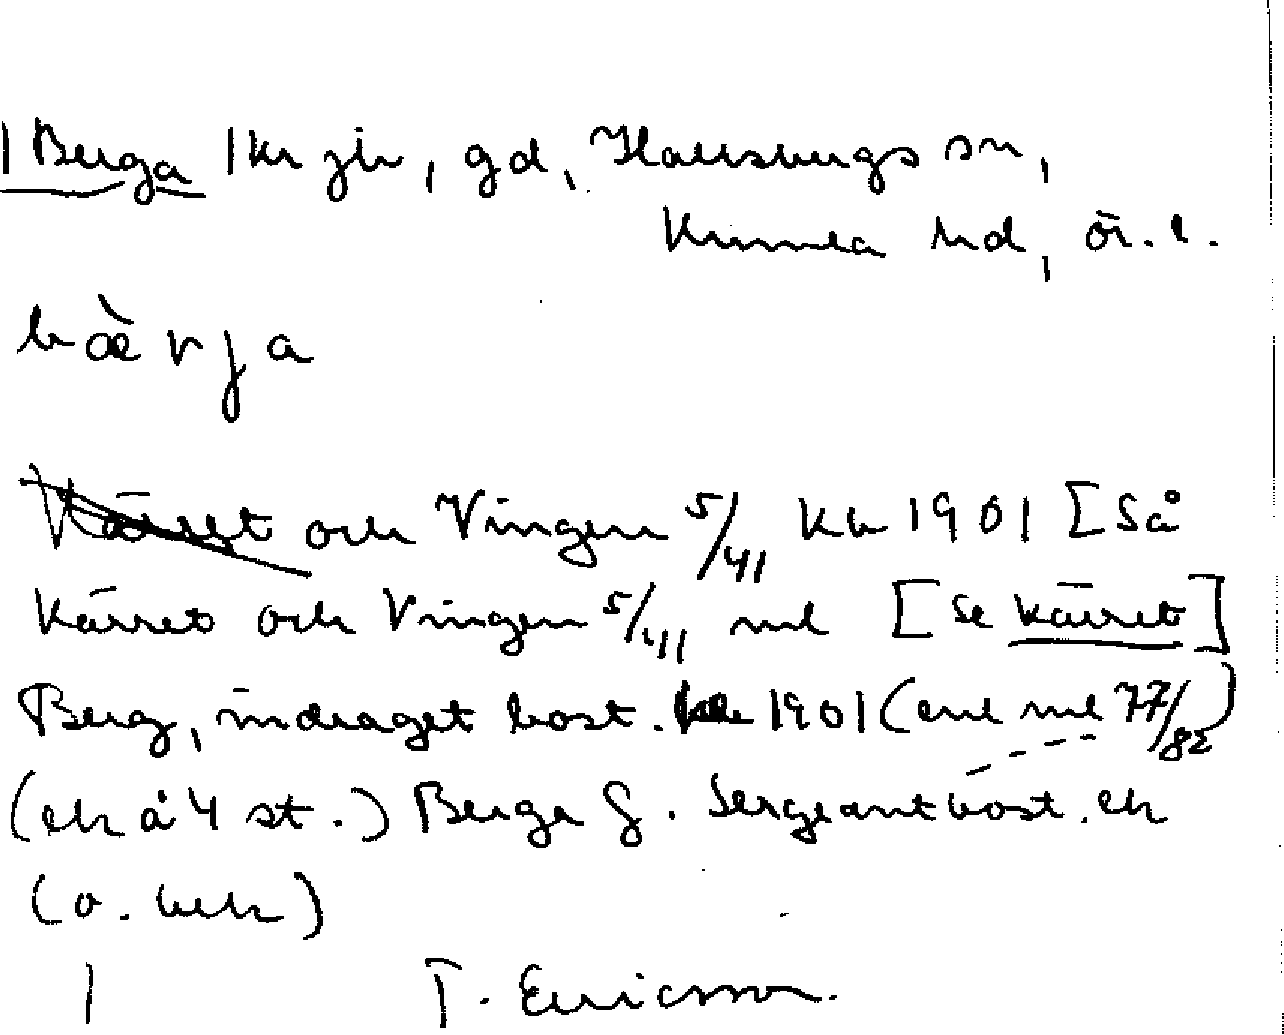 Berga 1 kr jb, gd, Hallsbergs sn,
Kumla hd, ör. l.
bæ̀rja
Kärret och Vingen 5/41 kb 1901 [Så
Kärret och Vingen 5/41 ml [se Kärret]
Berg, indraget bost. 1901 (enl ml 77/82)
(ek à 4 st.) Berga g. Sergeantbost. ek
(o. bek)
T. Ericsson.